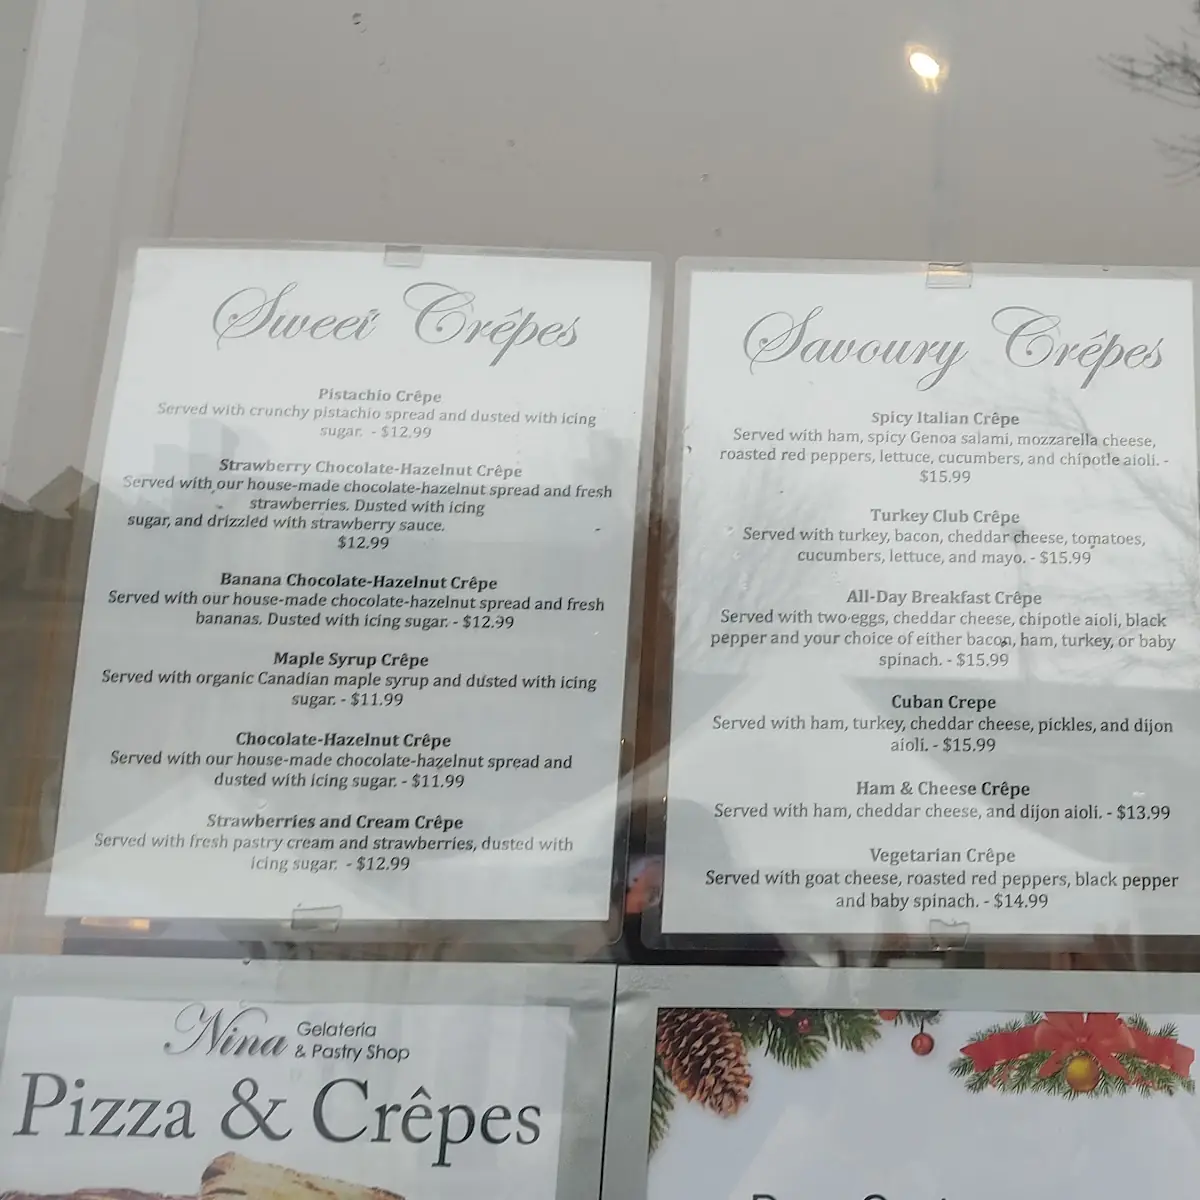 Sweet Crêpes
Pistachio Crêpe
Served with crunchy pistachio spread and dusted with icing
sugar. - $12.99
Strawberry Chocolate-Hazelnut Crêpe
Served with our house-made chocolate-hazelnut spread and fresh
strawberries. Dusted with icing
sugar, and drizzled with strawberry sauce.
$12.99
Banana Chocolate-Hazelnut Crêpe
Served with our house-made chocolate-hazelnut spread and fresh
bananas. Dusted with icing sugar. - $12.99
Maple Syrup Crêpe
Served with organic Canadian maple syrup and dusted with icing
sugar. - $11.99
Chocolate-Hazelnut Crêpe
Served with our house-made chocolate-hazelnut spread and
dusted with icing sugar. - $11.99
Strawberries and Cream Crêpe
Served with fresh pastry cream and strawberries, dusted with
icing sugar. - $12.99
Savoury Crêpes
Spicy Italian Crêpe
Served with ham, spicy Genoa salami, mozzarella cheese,
roasted red peppers, lettuce, cucumbers, and chipotle aioli. -
$15.99
Turkey Club Crêpe
Served with turkey, bacon, cheddar cheese, tomatoes,
cucumbers, lettuce, and mayo. - $15.99
All-Day Breakfast Crêpe
Served with two eggs, cheddar cheese, chipotle aioli, black
pepper and your choice of either bacon, ham, turkey, or baby
spinach. - $15.99
Cuban Crepe
Served with ham, turkey, cheddar cheese, pickles, and dijon
aioli. - $15.99
Ham & Cheese Crêpe
Served with ham, cheddar cheese, and dijon aioli. - $13.99
Vegetarian Crêpe
Served with goat cheese, roasted red peppers, black pepper
and baby spinach. - $14.99
Nina Gelateria
& Pastry Shop
Pizza & Crêpes